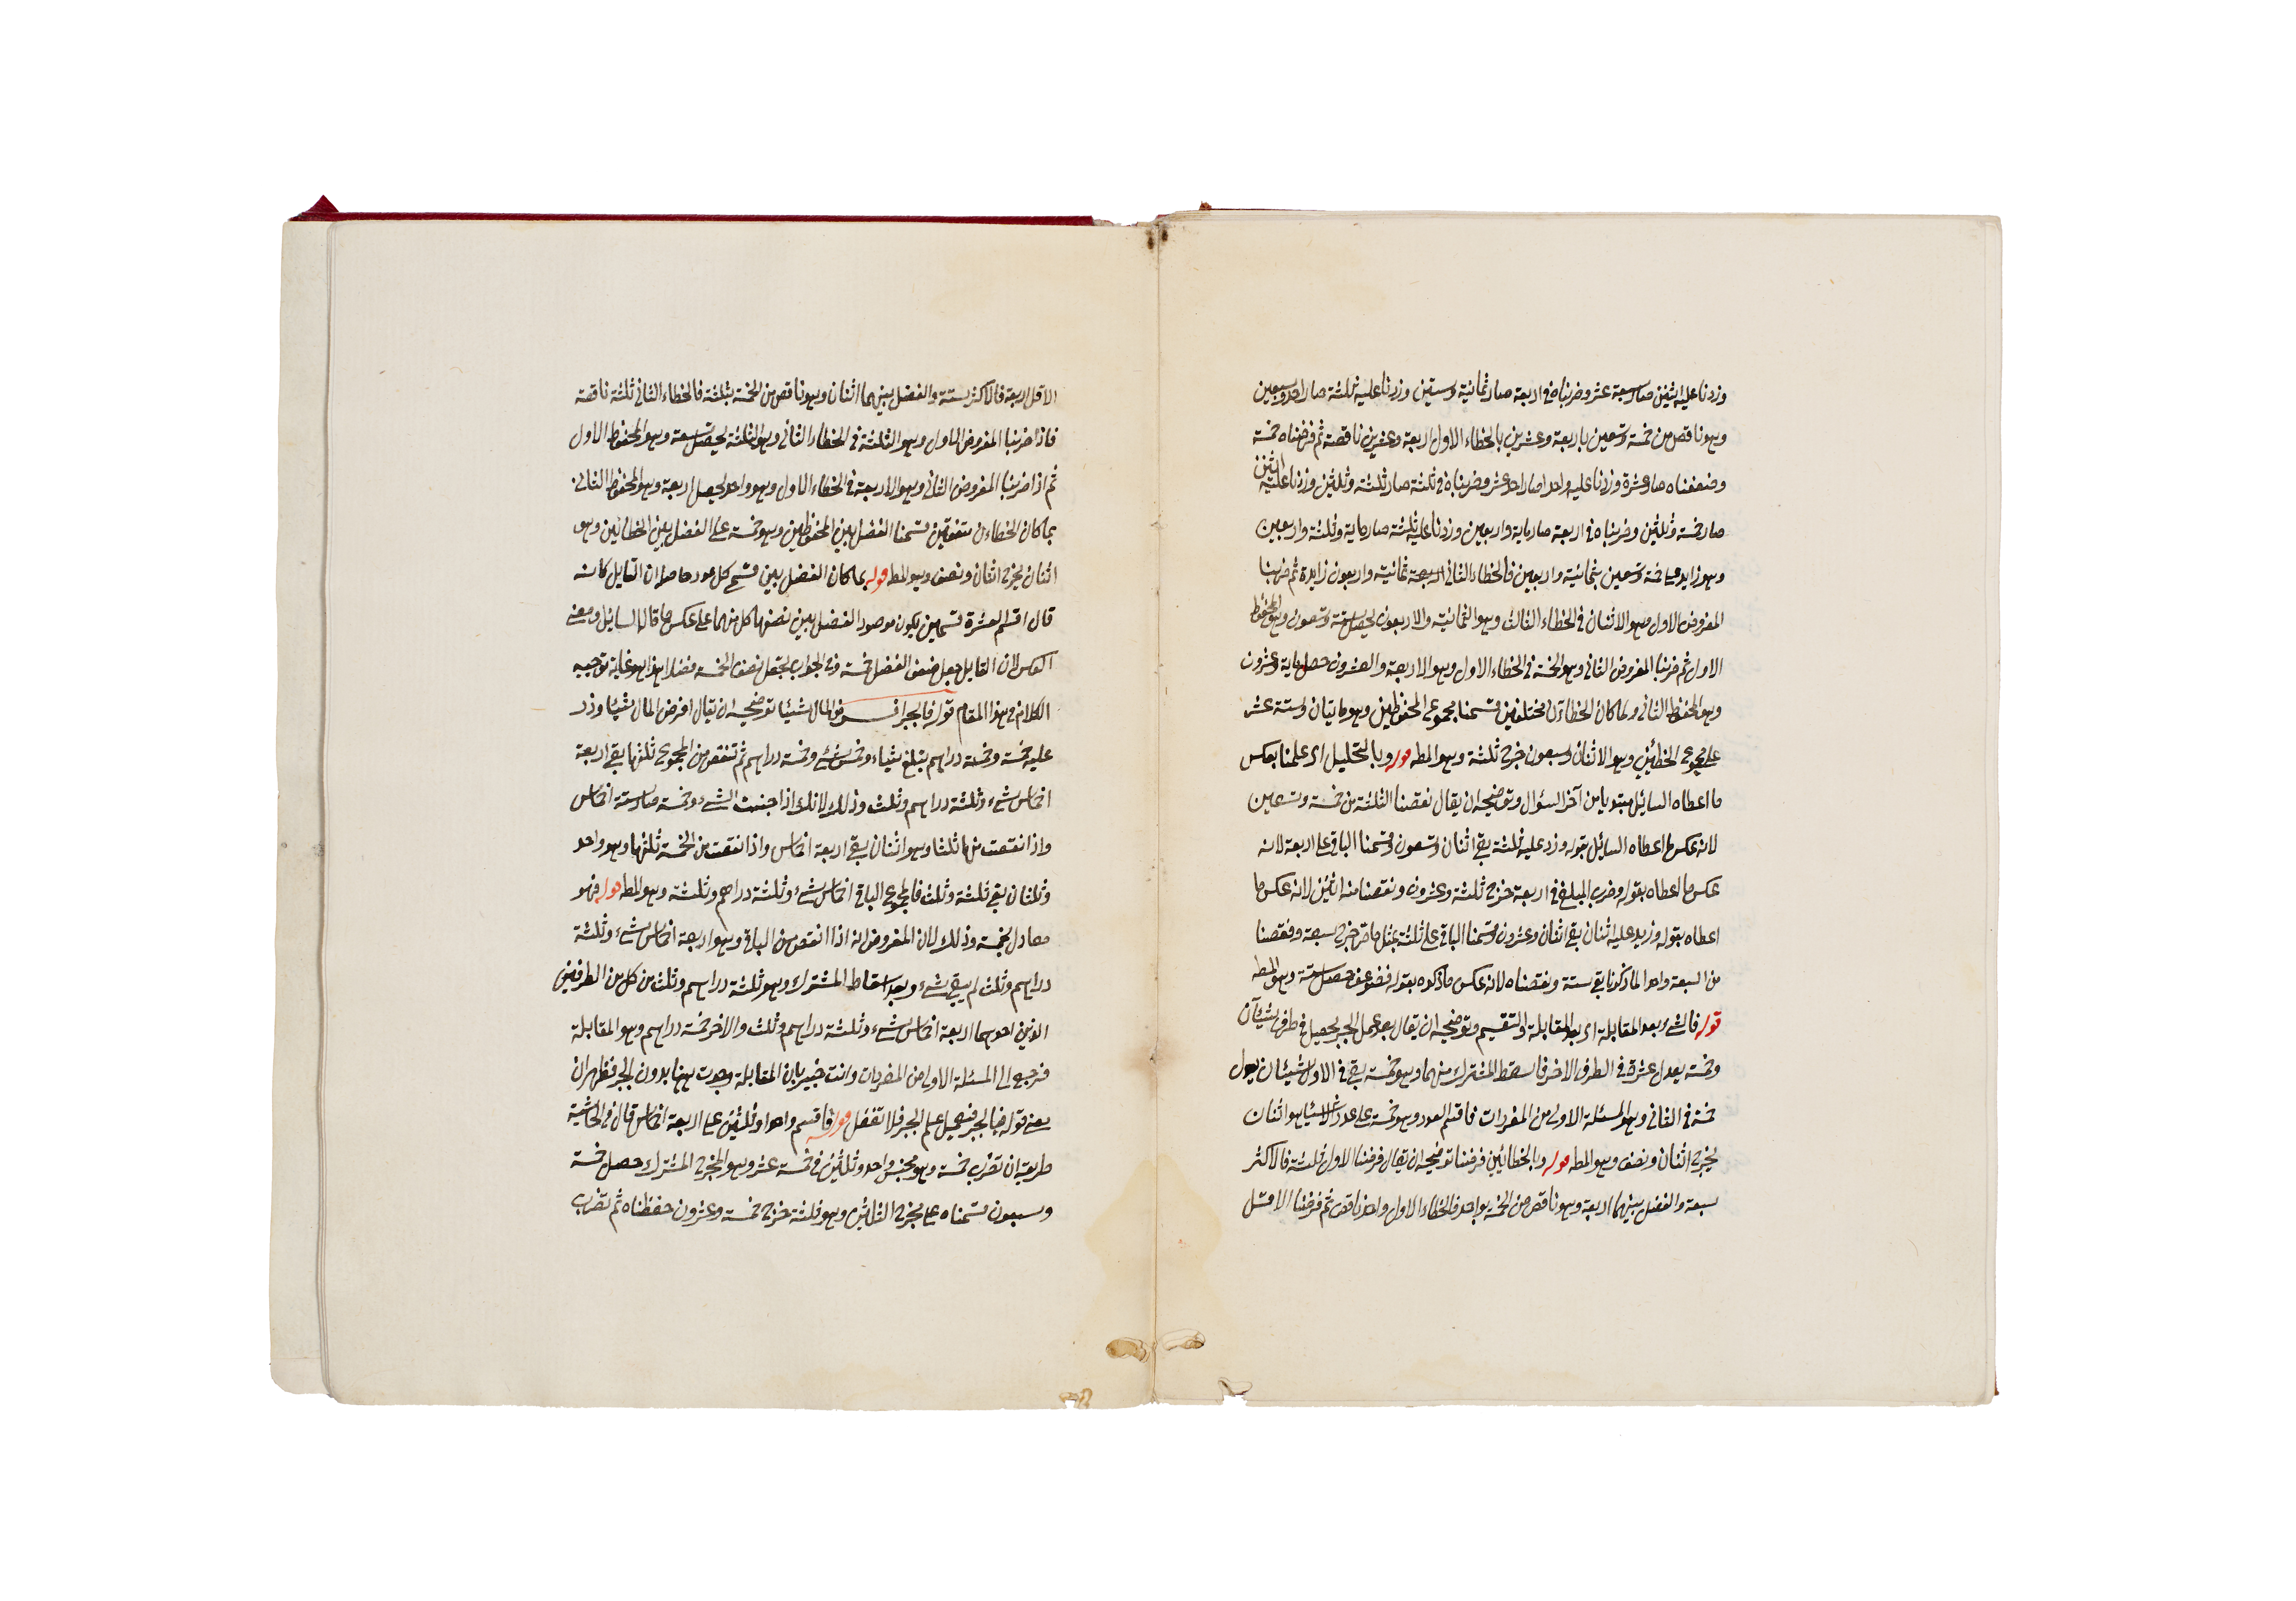 وزدنا عليه اثنين صار سبعة عشر وضربناه فى اربعة صار ثمانية وستين وزدنا عليه ثلثة صار احد وسبعين
وهو ناقص من خمسة وتسعين باربعة وعشرين بالخطاء الاول اربعة وعشرين ناقصة ثم فرضناه خمسة
وضعفناه صار عشرة وزدنا عليه واحدا صار احد عشر وضربناه فى ثلثة صار ثلثة وثلثين وزدنا عليه اثنين
صار خمسة وثلثين وضربناه فى اربعة صار ماية واربعين وزدنا عليه ثلثة صار ماية وثلثة واربعين
وهو زايد على خمسة وتسعين بثمانية واربعين فالخطاء الثانى ثمانية واربعون زايدة ثم ضربنا
المفروض الاول وهو الاثنان فى الخطاء الثالث وهو الثمانية والاربعون يحصل ستة وتسعون وهو المحفوظ
الاول ثم ضربنا المفروض الثانى وهو الخمسة فى الخطاء الاول وهو الاربعة والعشرون حصل ماية وعشرون
وهو المحفوظ الثانى ولما كان الخطاآن مختلفين قسمنا مجموع المحفوظين وهو مايتان وستة عشر
على مجموع الخطئين وهو الاثنان وسبعون خرج ثلثة وهو المط قوله وبالتحليل اى علمنا بعكس
ما اعطاه السايل مبتديا من آخر السؤال وتوضيحه ان يقال نقصنا الثلثة من خمسة وتسعين
لانه عكس ما اعطاه السايل بقوله وزد عليه ثلثة بقى اثنان وتسعون وقسمنا الباقى على اربعة لانه
عكس ما اعطاه بقوله وضرب المبلغ فى اربعة خرج ثلثة وعشرون ونقصنا منه اثنين لانه عكس ما
اعطاه بقوله وزيد عليه اثنان بقى احد وعشرون وقسمنا الباقى على ثلثة بمثل ما مر خرج سبعة ونقصنا
من السبعة واحدا لما ذكرنا بقى ستة ونصفناه لانه عكس ما ذكره بقوله فضوعف حصل ثلثة وهو المط
قوله فالشىء بعد المقابلة اى بعد المقابلة والتقسيم وتوضيحه ان يقال بعد عمل الجبر يحصل فى طرف شيئان
وخمسة يعدل عشرة فى الطرف الاخر فاسقط المشترك منهما وهو خمسة بقى فى الاول شيئان يعدل
خمسة فى الثانى وهو المسئلة الاولى من المفردات فاقسم العدد وهو خمسة على عدد الاشياء وهو اثنان
يخرج اثنان ونصف وهو المط قوله وبالخطائين فرضنا توضيحه ان يقال فرضنا الاول ثلثة فالاكثر
سبعة والفضل بينهما اربعة وهو ناقص من الخمسة بواحد فالخطاء الاول واحد ناقص ثم فرضنا الاقل
الاقل اربعة فالاكثر ستة والفضل بينهما اثنان وهو ناقص من الخمسة بثلثة فالخطاء الثانى ثلثة ناقصة
فاذا ضربنا المفروض الاول وهو الثلثة فى الخطاء الثانى وهو الثلثة يحصل تسعة وهو المحفوظ الاول
ثم اذا ضربنا المفروض الثانى وهو الاربعة فى الخطاء الاول وهو واحد يحصل اربعة وهو المحفوظ الثانى
بما كان الخطاءان متفقين قسمنا الفضل بين المحفوظين وهو خمسة على الفضل بين الخطائين وهو
اثنان يخرج اثنان ونصف وهو المط قوله بما كان الفضل بين قسمى كل عدد حاصله ان القايل كانه
قال اقسم العشرة قسمين يكون موصود الفضل بين نصفهما كل منهما على عكس ما قال السايل ومعنى
العكس لان القايل جعل ضعف الفضل خمسة وفى الجواب يجعل نصف الخمسة فضلا هذا هو غاية توجيه
الكلام فى هذا المقام قوله فبالجبر افرض المال شيئا توضيحه ان يقال افرض المال شيئا وزد
عليه خمسه وخمسة دراهم يبلغ شيئا وخمس شىء وخمسة دراهم ثم تنقص من المجموع ثلثها بقى اربعة
اخماس شىء وثلثة دراهم وثلث وذلك لانك اذا جنست الشىء وخمسه صار ستة اخماس
واذا نقصت منها ثلثا وهو اثنان بقى اربعة اخماس واذا نقصت من الخمسة ثلثها وهو واحد
وثلثان بقى ثلثة وثلث فالمجموع الباقى اخماس شىء وثلثة دراهم وثلثة وهو المط قوله فهو
معادل لخمسة وذلك لان المفروض انه اذا انقص من الباقى وهو اربعة اخماس شىء وثلثة
دراهم وثلث لم يبقى شىء وبعد اسقاط المشترك وهو ثلثة دراهم وثلث من كل من الطرفين
الذين احدهما اربعة اخماس شىء وثلثة دراهم وثلث والاخر خمسة دراهم وهو المقابلة
فرجع الى المسئلة الاولى من المفردات وانت خبير بان المقابلة وجدت هنا بدون الجبر فظهر ان
معنى قوله فبالجبر فبعمل علم الجبر فلا تغفل قوله فاقسم واحدا وثلثين على اربعة اخماس قال فى الحاشية
طريقه ان تضرب خمسة وهو مجنس واحد وثلثين فى خمسة عشر وهو المخرج المشترك حصل خمسة
وسبعون قسمناه على مخرج الثلثين وهو ثلثة خرج خمسة وعشرون حفظناه ثم تضرب